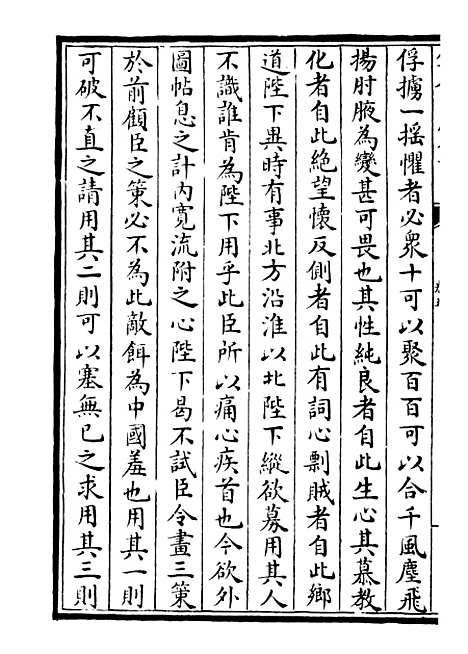 俘擄一揺懼者必衆十可以聚百百可以合千風塵飛
揚肘腋為變甚可畏也其性純良者自此生心其慕教
化者自此絶望懷反側者自此有詞心剽賊者自此鄉
道陛下異時有事北方沿淮以北陛下縱欲募用其人
不識誰肯為陛下用乎此臣所以痛心疾首也今欲外
圖帖息之計内寛流附之心陛下曷不試臣令畫三策
於前顧臣之策必不為此敵餌為中國羞也用其一則
可破不直之請用其二則可以塞無已之求用其三則